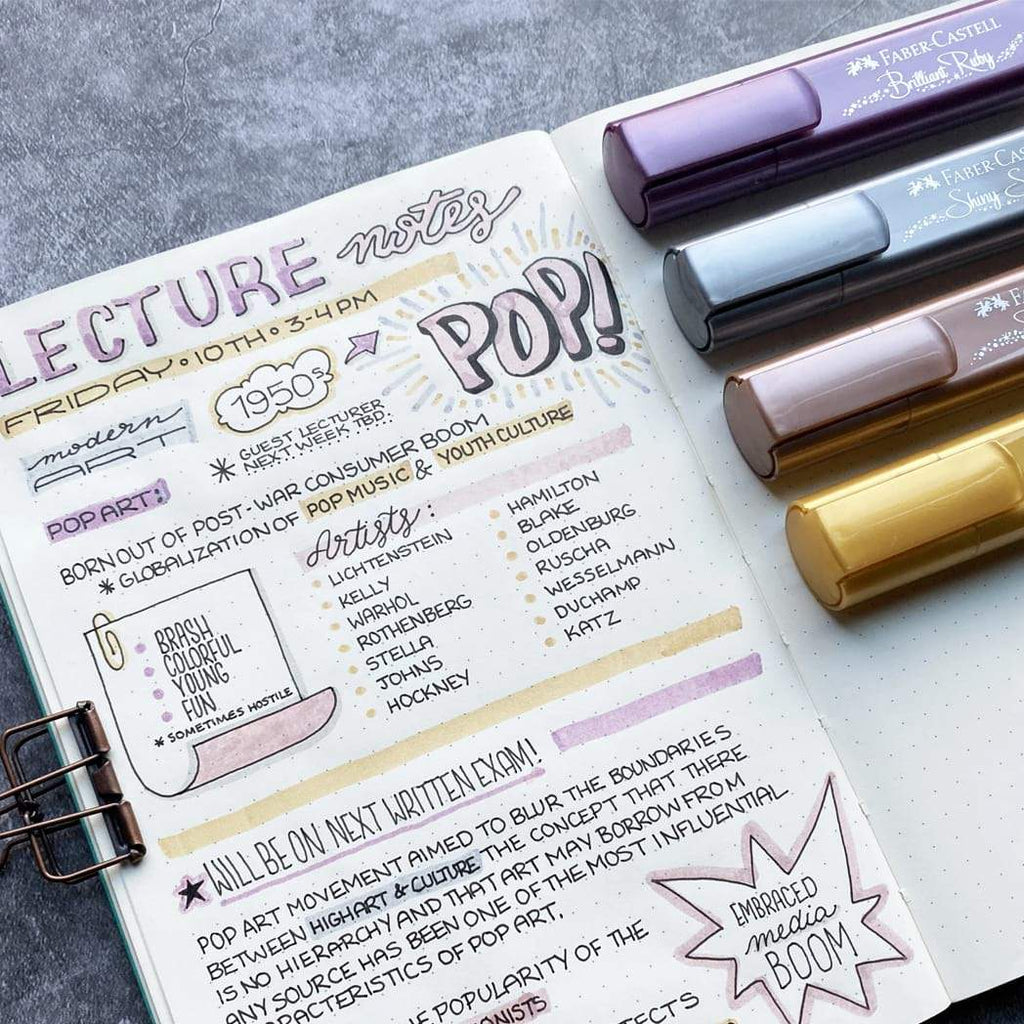 LECTURE notes
FRIDAY • 10TH • 3-4 PM
POP!
modern
ART
1950s
* GUEST LECTURER
NEXT WEEK TBD.
POP ART:
BORN OUT OF POST-WAR CONSUMER BOOM
* GLOBALIZATION OF POP MUSIC & YOUTH CULTURE
BRASH
COLORFUL
YOUNG
FUN
* SOMETIMES HOSTILE
Artists:
LICHTENSTEIN
KELLY
WARHOL
ROTHENBERG
STELLA
JOHNS
HOCKNEY
HAMILTON
BLAKE
OLDENBURG
RUSCHA
WESSELMANN
DUCHAMP
KATZ
★ WILL BE ON NEXT WRITTEN EXAM!
POP ART MOVEMENT AIMED TO BLUR THE BOUNDARIES
BETWEEN HIGH ART & CULTURE THE CONCEPT THAT THERE
IS NO HIERARCHY AND THAT ART MAY BORROW FROM
ANY SOURCE HAS BEEN ONE OF THE MOST INFLUENTIAL
CHARACTERISTICS OF POP ART.
POPULARITY OF THE
EMBRACED
media
BOOM
FABER-CASTELL
Brilliant Ruby
FABER-CAST
Shiny S